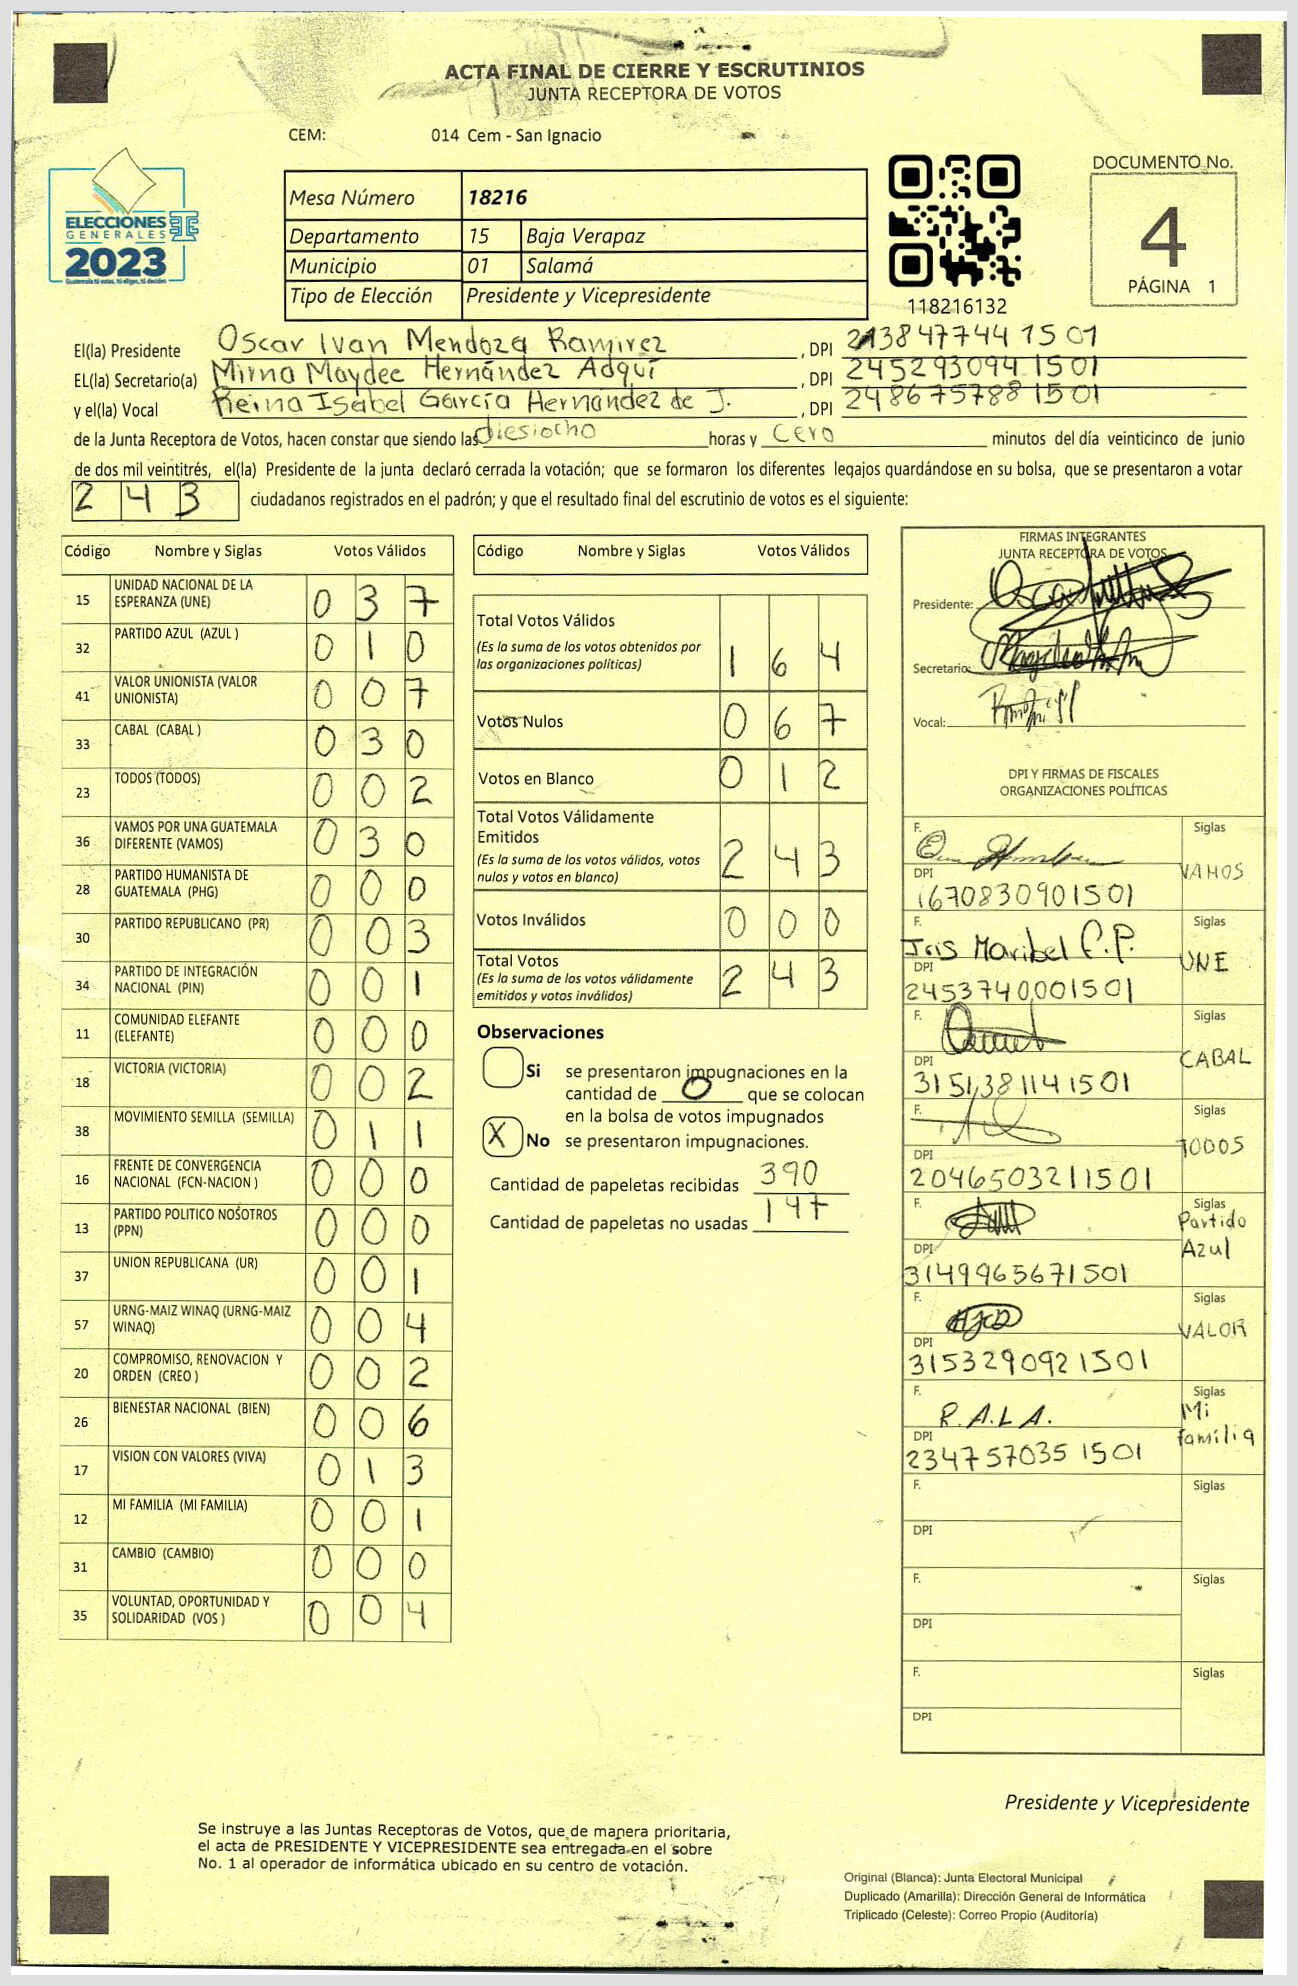 ACTA FINAL DE CIERRE Y ESCRUTINIOS
JUNTA RECEPTORA DE VOTOS
CEM: 014 Cem - San Ignacio
ELECCIONES
GENERALES
2023
Guatemala tú votas, tú eliges, tú decides
Mesa Número 18216
Departamento 15 Baja Verapaz
Municipio 01 Salamá
Tipo de Elección Presidente y Vicepresidente
118216132
DOCUMENTO No.
4
PÁGINA 1
El(la) Presidente Oscar Ivan Mendoza Ramirez , DPI 213847744 1501
EL(la) Secretario(a) Mirna Maydee Hernández Adquí , DPI 245293094 1501
y el(la) Vocal Reina Isabel García Hernandez de J. , DPI 248675788 1501
de la Junta Receptora de Votos, hacen constar que siendo las diesiocho horas y cero minutos del día veinticinco de junio
de dos mil veintitrés, el(la) Presidente de la junta declaró cerrada la votación; que se formaron los diferentes legajos quardándose en su bolsa, que se presentaron a votar
243 ciudadanos registrados en el padrón; y que el resultado final del escrutinio de votos es el siguiente:
Código Nombre y Siglas Votos Válidos
15 UNIDAD NACIONAL DE LA ESPERANZA (UNE) 0 3 7
32 PARTIDO AZUL (AZUL ) 0 1 0
41 VALOR UNIONISTA (VALOR UNIONISTA) 0 0 7
33 CABAL (CABAL ) 0 3 0
23 TODOS (TODOS) 0 0 2
36 VAMOS POR UNA GUATEMALA DIFERENTE (VAMOS) 0 3 0
28 PARTIDO HUMANISTA DE GUATEMALA (PHG) 0 0 0
30 PARTIDO REPUBLICANO (PR) 0 0 3
34 PARTIDO DE INTEGRACIÓN NACIONAL (PIN) 0 0 1
11 COMUNIDAD ELEFANTE (ELEFANTE) 0 0 0
18 VICTORIA (VICTORIA) 0 0 2
38 MOVIMIENTO SEMILLA (SEMILLA) 0 1 1
16 FRENTE DE CONVERGENCIA NACIONAL (FCN-NACION ) 0 0 0
13 PARTIDO POLITICO NOSOTROS (PPN) 0 0 0
37 UNION REPUBLICANA (UR) 0 0 1
57 URNG-MAIZ WINAQ (URNG-MAIZ WINAQ) 0 0 4
20 COMPROMISO, RENOVACION Y ORDEN (CREO ) 0 0 2
26 BIENESTAR NACIONAL (BIEN) 0 0 6
17 VISION CON VALORES (VIVA) 0 1 3
12 MI FAMILIA (MI FAMILIA) 0 0 1
31 CAMBIO (CAMBIO) 0 0 0
35 VOLUNTAD, OPORTUNIDAD Y SOLIDARIDAD (VOS ) 0 0 4
Código Nombre y Siglas Votos Válidos
Total Votos Válidos
(Es la suma de los votos obtenidos por
las organizaciones políticas) 1 6 4
Votos Nulos 0 6 7
Votos en Blanco 0 1 2
Total Votos Válidamente
Emitidos
(Es la suma de los votos válidos, votos
nulos y votos en blanco) 2 4 3
Votos Inválidos 0 0 0
Total Votos
(Es la suma de los votos válidamente
emitidos y votos inválidos) 2 4 3
Observaciones
Si se presentaron impugnaciones en la
cantidad de 0 que se colocan
en la bolsa de votos impugnados
X No se presentaron impugnaciones.
Cantidad de papeletas recibidas 390
Cantidad de papeletas no usadas 147
FIRMAS INTEGRANTES
JUNTA RECEPTORA DE VOTOS
Presidente:
Secretario:
Vocal:
DPI Y FIRMAS DE FISCALES
ORGANIZACIONES POLÍTICAS
F. Siglas
VAMOS
DPI
1670830901501
F. Iris Maribel P.P. Siglas
UNE
DPI
2453740001501
F. Siglas
CABAL
DPI
3151381141501
F. Siglas
TODOS
DPI
2046503211501
F. Siglas
Partido
Azul
DPI
3149965671501
F. Siglas
VALOR
DPI
3153290921501
F. R.A.L.A. Siglas
Mi
familia
DPI
234757035 1501
F. Siglas
DPI
F. Siglas
DPI
F. Siglas
DPI
Presidente y Vicepresidente
Se instruye a las Juntas Receptoras de Votos, que de manera prioritaria,
el acta de PRESIDENTE Y VICEPRESIDENTE sea entregada en el sobre
No. 1 al operador de informática ubicado en su centro de votación.
Original (Blanca): Junta Electoral Municipal
Duplicado (Amarilla): Dirección General de Informática
Triplicado (Celeste): Correo Propio (Auditoría)